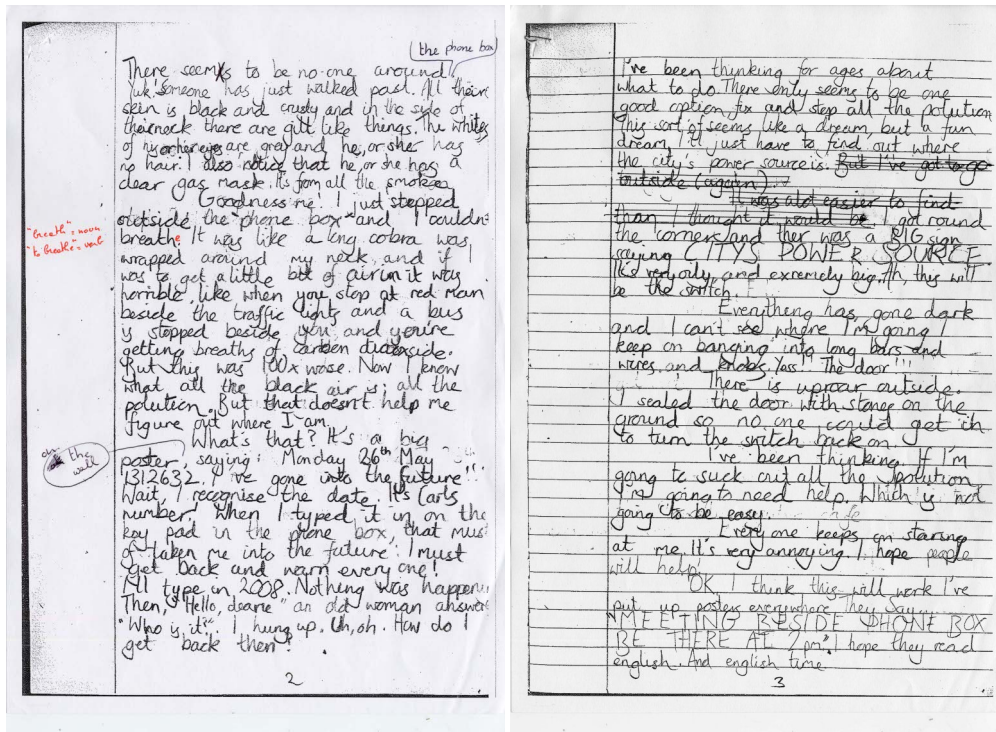 (the phone box)
There seems to be no one around
Yuk! Someone has just walked past. All their
skin is black and crusty and in the side of
their neck there are gill like things. The whites
of his or her eyes are grey and he, or she has
no hair. I also notice that he, or she has a
clear gas mask. It's from all the smoke
Goodness me! I just stepped
outside the "phone box" and I couldn't
breathe. It was like a long cobra was
"breath" = noun
"to breathe" = verb
wrapped around my neck, and if I
was to get a little bit of air in it was
horrible, like when you stop at red man
beside the traffic lights and a bus
is stopped beside you and you're
getting breaths of carben diaoxside.
But this was 100x worse. Now I know
what all the black air is; all the
polution. But that doesn't help me
figure out where I am.
What's that? It's a big
on the wall
poster, saying: Monday 26th May
1312632. I've gone into the future!!!
Wait, I recognise the date. It's Carls
number! When I typed it in on the
key pad in the phone box, that must
of taken me into the future. I must
get back and warn every one!
I'll type in 2008. Nothing was happening
Then, "Hello, dearie" an old woman answers
"Who is it?". I hung up. Uh, oh. How do I
get back then?
2
I've been thinking for ages about
what to do. There only seems to be one
good option, fix and stop all the polution
This sort of seems like a dream, but a fun
dream, I'll just have to find out where
the city's power source is. But I've got to go
outside (again).
It was alot easier to find
than I thought it would be. I got round
the corner and ther was a BIG sign
saying CITYS POWER SOURCE
It's very oily, and exremely big. Ah, this will
be the switch.
Everything has gone dark
and I can't see where I'm going I
keep on banging into long bars and
wires, and knobs. Yass! The door!!!
There is uproar outside.
I sealed the door with stones on the
ground so no one could get in
to turn the switch back on.
I've been thinking. If I'm
going to suck out all the polution,
I'm going to need help. Which is not
going to be easy.
Every one keeps on staring
at me. It's very annoying. I hope people
will help.
OK I think this will work I've
put up posters everywhere They say
"MEETING BESIDE PHONE BOX
BE THERE AT 2pm." I hope they read
english. And english time
3